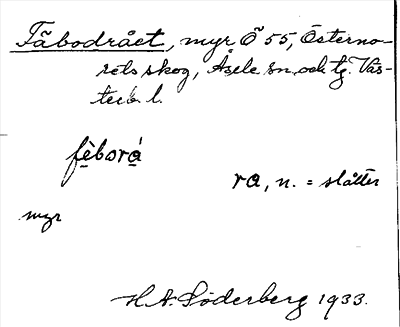 Fäbodrået, myr Ö 55, Österno-
rets skog, Åsele sn. och tg. Väs-
terb. l.
fèborá
ra, n. = slåtter
myr
H.A. Söderberg 1933.